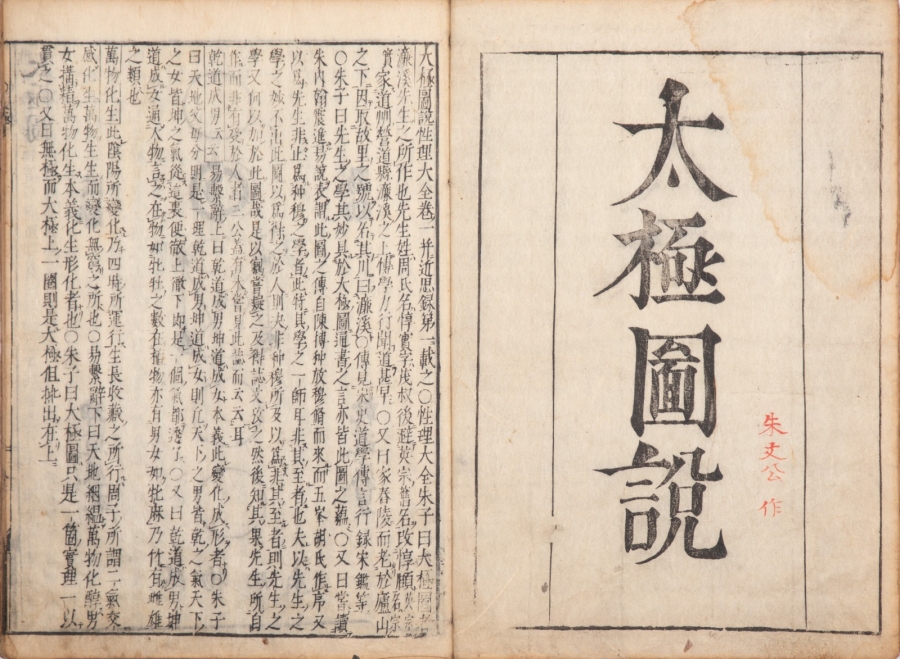 太極圖說
朱文公 作
大極圖說性理大全卷一并近思錄第一載之○性理大全朱子曰大極圖者
濂溪先生之所作也先生姓周氏名惇實字茂叔後避英宗舊名改惇頤英宗舊名宗
實家道州營道縣濂溪之上博學力行聞道甚早○又曰家舂陵而老於廬山
之下因取故里之號以名其川曰濂溪○傳見宋史道學傳言行錄宋鑑等
○朱子曰先生之學其妙具於大極圖通書之言亦皆此圖之蘊○又曰嘗讀
朱內翰震進易說表謂此圖之傳自陳傅种放穆脩而來而五峯胡氏作序又
以爲先生非止爲种穆之學者此特其學之一師耳非其至者也夫以先生之
學之妙不出此圖以爲得之於人則决非种穆所及以爲非其至者則先生之
學又何以加於此圖哉是以竊嘗疑之及得誌文攷之然後知其果先生所自
作而非有受於人者二公蓋有未嘗見此誌而云云耳
乾道成男云云易繫辭上曰乾道成男坤道成女本義此變化成形者○朱子
曰天地父母分明是一理乾道成男坤道成女則凡天下之男皆乾之氣天下
之女皆坤之氣從這裏便徹上徹下卽是一個氣都透了○又曰乾道成男坤
道成女通人物言之在物如牝牡之數在植物亦有男女如牝麻乃竹有雌雄
之類也
萬物化生此陰陽所變化乃四時所運行生長收藏之所行周子所謂二氣交
感化生萬物生生而變化無窮之所也○易繫辭下曰天地絪縕萬物化醇男
女搆精萬物化生本義化生形化者也○朱子曰大極圖只是一箇實理一以
貫之○又曰無極而大極上一圈則是大極但挑出在上